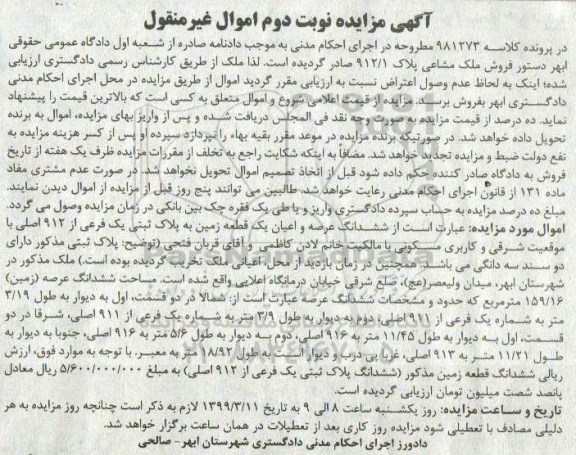 آگهی مزایده نوبت دوم اموال غیرمنقول
در پرونده کلاسه ۹۸۱۲۷۳ مطروحه در اجرای احکام مدنی به موجب دادنامه صادره از شعبه اول دادگاه عمومی حقوقی
ابهر دستور فروش ملک مشاعی پلاک ۹۱۲/۱ صادر گردیده است. لذا ملک از طریق کارشناس رسمی دادگستری ارزیابی
شده؛ اینک به لحاظ عدم وصول اعتراض نسبت به ارزیابی مقرر گردید اموال از طریق مزایده در محل اجرای احکام مدنی
دادگستری ابهر بفروش برسد. مزایده از قیمت اعلامی شروع و اموال متعلق به کسی است که بالاترین قیمت را پیشنهاد
نماید. ده درصد از قیمت مزایده به صورت وجه نقد فی المجلس دریافت شده و پس از واریز بهای مزایده، اموال به برنده
تحویل داده خواهد شد. در صورتیکه برنده مزایده در موعد مقرر بقیه بهاء را نپردازد سپرده او پس از کسر هزینه مزایده به
نفع دولت ضبط و مزایده تجدید خواهد شد. مضافاً به اینکه شکایت راجع به تخلف از مقررات مزایده ظرف یک هفته از تاریخ
فروش به دادگاه صادر کننده حکم داده شود قبل از اتخاذ تصمیم اموال تحویل نخواهد شد. در صورت عدم مشتری مفاد
ماده ۱۳۱ از قانون اجرای احکام مدنی رعایت خواهد شد. طالبین می توانند پنج روز قبل از مزایده از اموال دیدن نمایند.
مبلغ ده درصد مزایده به حساب سپرده دادگستری واریز و یا طی یک فقره چک بین بانکی در زمان مزایده وصول می گردد.
اموال مورد مزایده: عبارت است از ششدانگ عرصه و اعیان یک قطعه زمین به پلاک ثبتی یک فرعی از ۹۱۲ اصلی با
موقعیت شرقی و کاربری مسکونی با مالکیت خانم لادن کاظمی و آقای قربان فتحی (توضیح: پلاک ثبتی مذکور دارای
دو سند سه دانگی می باشد. همچنین در زمان بازدید از محل، اعیانی ملک تخریب گردیده بوده است.) ملک مذکور در
شهرستان ابهر، میدان ولیعصر(عج)، ضلع شرقی خیابان درمانگاه اعلایی واقع شده است. مساحت ششدانگ عرصه (زمین)
۱۵۹/۱۶ مترمربع که حدود و مشخصات ششدانگ عرصه عبارت است از: شمالا در دو قسمت، اول به دیوار به طول ۳/۱۹
متر به شماره یک فرعی از ۹۱۱ اصلی، دوم به دیوار به طول ۳/۹ متر به شماره یک فرعی از ۹۱۱ اصلی، شرقا در دو
قسمت، اول به دیوار به طول ۱۱/۴۵ متر به ۹۱۶ اصلی، دوم به دیوار به طول ۵/۶ متر به ۹۱۶ اصلی، جنوبا به دیوار به
طول ۱۱/۲۱ متر به ۹۱۳ اصلی، غربا پی درب و دیوار است به طول ۱۸/۹۲ متر به معبر. با توجه به موارد فوق، ارزش
ریالی ششدانگ قطعه زمین مذکور (ششدانگ پلاک ثبتی یک فرعی از ۹۱۲ اصلی) به مبلغ ۵/۶۰۰/۰۰۰/۰۰۰ ریال معادل
پانصد شصت میلیون تومان ارزیابی گردیده است.
تاریخ و ساعت مزایده: روز یکشنبه ساعت ۸ الی ۹ به تاریخ ۱۳۹۹/۳/۱۱ لازم به ذکر است چنانچه روز مزایده به هر
دلیلی مصادف با تعطیلی شود مزایده روز کاری بعد از تعطیلات در همان ساعت برگزار خواهد شد.
دادورز اجرای احکام مدنی دادگستری شهرستان ابهر- صالحی